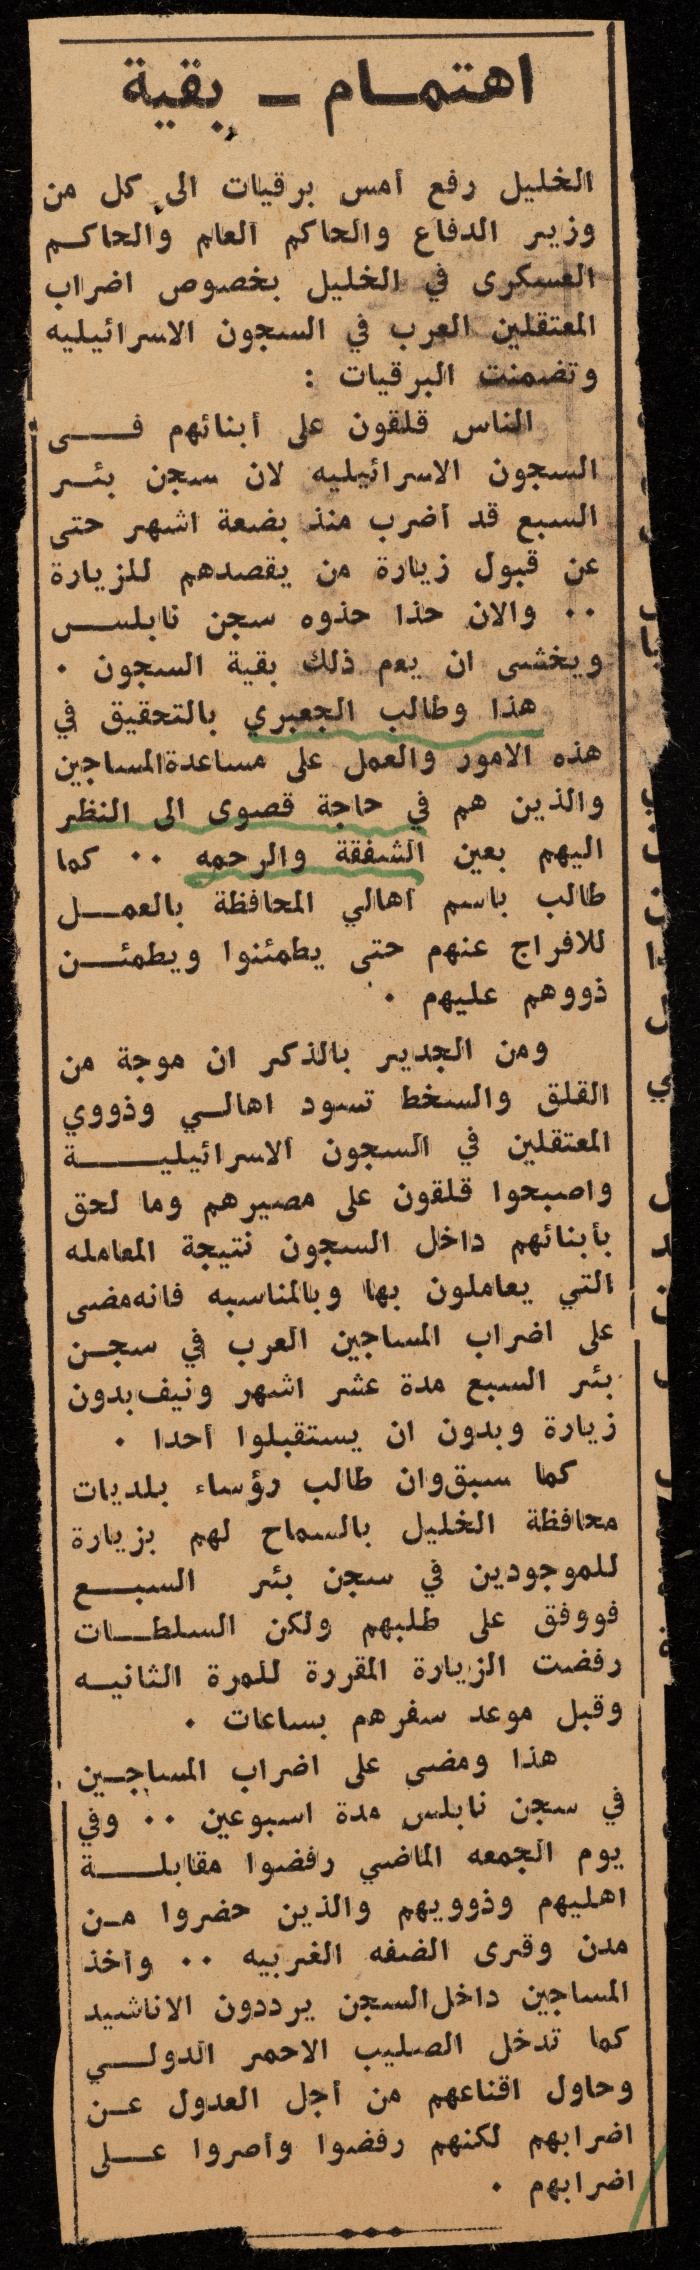 اهتمام - بقية
الخليل رفع أمس برقيات الى كل من
وزير الدفاع والحاكم العام والحاكم
العسكرى في الخليل بخصوص اضراب
المعتقلين العرب في السجون الاسرائيليه
وتضمنت البرقيات :
الناس قلقون على أبنائهم فى
السجون الاسرائيليه لان سجن بئر
السبع قد أضرب منذ بضعة اشهر حتى
عن قبول زيارة من يقصدهم للزيارة
.. والان حذا حذوه سجن نابلس
ويخشى ان يعم ذلك بقية السجون .
هذا وطالب الجعبري بالتحقيق في
هذه الامور والعمل على مساعدة المساجين
والذين هم في حاجة قصوى الى النظر
اليهم بعين الشفقة والرحمه .. كما
طالب باسم اهالي المحافظة بالعمل
للافراج عنهم حتى يطمئنوا ويطمئن
ذووهم عليهم .
ومن الجدير بالذكر ان موجة من
القلق والسخط تسود اهالي وذووي
المعتقلين في السجون الاسرائيلية
واصبحوا قلقون على مصيرهم وما لحق
بأبنائهم داخل السجون نتيجة المعامله
التي يعاملون بها وبالمناسبه فانه مضى
على اضراب المساجين العرب في سجن
بئر السبع مدة عشر اشهر ونيف بدون
زيارة وبدون ان يستقبلوا أحدا .
كما سبق وان طالب رؤساء بلديات
محافظة الخليل بالسماح لهم بزيارة
للموجودين في سجن بئر السبع
فووفق على طلبهم ولكن السلطات
رفضت الزيارة المقررة للمرة الثانيه
وقبل موعد سفرهم بساعات .
هذا ومضى على اضراب المساجين
في سجن نابلس مدة اسبوعين .. وفي
يوم الجمعه الماضي رفضوا مقابلة
اهليهم وذوويهم والذين حضروا من
مدن وقرى الضفه الغربيه .. وأخذ
المساجين داخل السجن يرددون الاناشيد
كما تدخل الصليب الاحمر الدولي
وحاول اقناعهم من أجل العدول عن
اضرابهم لكنهم رفضوا وأصروا على
اضرابهم .